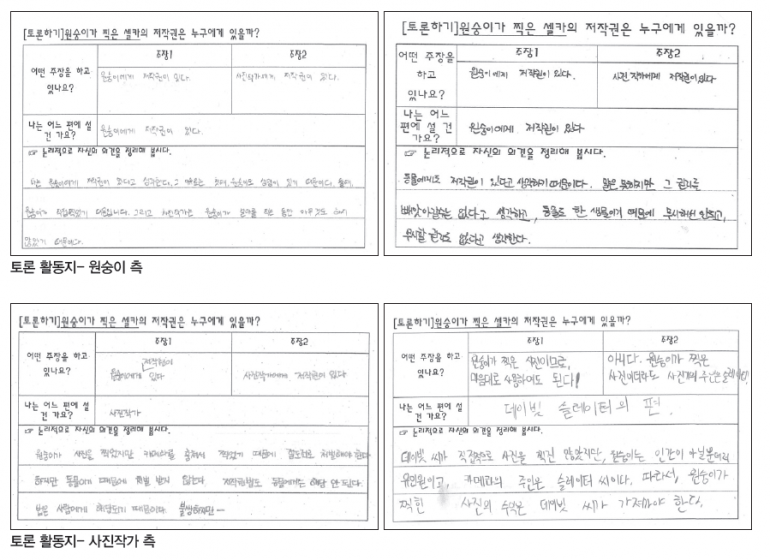 [토론하기]원숭이가 찍은 셀카의 저작권은 누구에게 있을까?
주장1 주장2
어떤 주장을 하고 있나요?
원숭이에게 저작권이 있다. 사진작가에게 저작권이 있다.
나는 어느 편에 설 건가요?
원숭이에게 저작권이 있다.
☞ 논리적으로 자신의 의견을 정리해 봅시다.
나는 원숭이에게 저작권이 있다고 생각한다. 그
원숭이가 직접찍었기 때문입니다. 그리고 사진작가는 원숭이가
때문이다.
[토론하기]원숭이가 찍은 셀카의 저작권은 누구에게 있을까?
주장1 주장2
어떤 주장을 하고 있나요?
원숭이에게 저작권이 있다. 사진 작가에게 저작권이 있다
나는 어느 편에 설 건가요?
원숭이에게 저작권이 있다
☞ 논리적으로 자신의 의견을 정리해 봅시다.
동물에게도 저작권이 있다고 생각하기 때문이다. 말은 못하지만 그 권리를
빼앗아갈수는 없다고 생각하고, 동물도 한 생물이기 때문에 무시해선 안되고,
무시할 권리도 없다고 생각한다.
토론 활동지- 원숭이 측
[토론하기]원숭이가 찍은 셀카의 저작권은 누구에게 있을까?
주장1 주장2
어떤 주장을 하고 있나요?
원숭이에게 저작권이 있다 사진작가에게 저작권이 있다
나는 어느 편에 설 건가요?
사진작가
☞ 논리적으로 자신의 의견을 정리해 봅시다.
원숭이가 사진을 찍었지만 카메라를 훔쳐서 찍었기 때문에 절도죄로 처벌해야 한다
하지만 동물이기 때문에 처벌 받지 않는다. 저작권법도 동물에게는 해당 안 된다.
법은 사람에게 해당되기 때문이다. 불쌍하지만—
[토론하기]원숭이가 찍은 셀카의 저작권은 누구에게 있을까?
주장1 주장2
어떤 주장을 하고 있나요?
원숭이가 찍은 사진이므로, 마음대로 사용하여도 된다!
아니다. 원숭이가 찍은 사진이더라도 사진기의 주인은
나는 어느 편에 설 건가요?
데이빗 슬레이터의 편.
☞ 논리적으로 자신의 의견을 정리해 봅시다.
데이빗 씨가 직접적으로 사진을 찍진 않았지만, 원숭이는 인간이 아닐뿐더러
유인원이고, 카메라의 주인은 슬레이터 씨이다. 따라서, 원숭이가
찍힌 사진의 수익은 데이빗 씨가 가져가야 한다.
토론 활동지- 사진작가 측